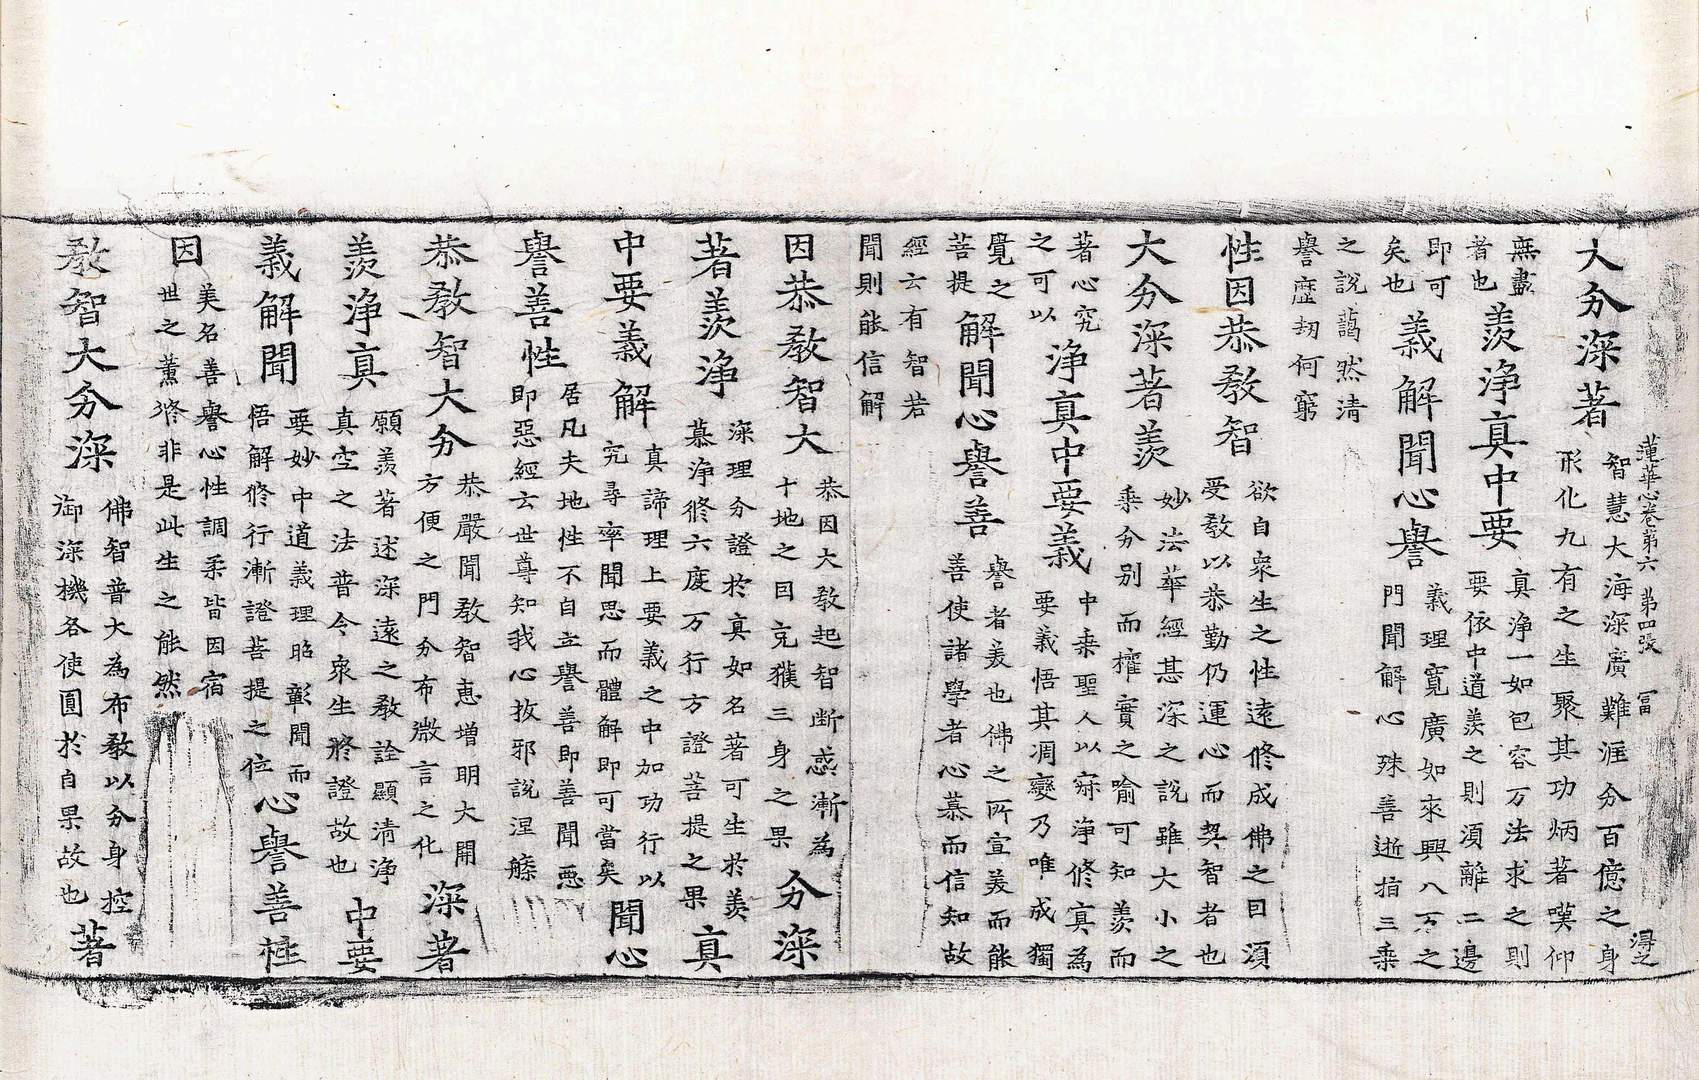 蓮華心卷第六 第四張 冨 淂之
大分深著
智慧大海深廣難涯分百億之身
形化九有之生聚其功炳著嘆仰
無盡
者也
羨淨真中要
真淨一如包容万法求之則
要依中道羨之則須離二邊
即可
矣也
義解聞心譽
義理寬廣如來興八万之
門聞解心殊善逝指三乘
之說藹然清
譽歷刼何窮
性因恭敎智
欲自衆生之性遠修成佛之因須
受敎以恭勤仍運心而契智者也
大分深著羨
妙法華經甚深之說雖大小之
乘分別而權實之喻可知羨而
著心究
之可以
淨真中要義
中乘聖人以寂淨修真為
要義悟其凋變乃唯成獨
覺之
菩提
解聞心譽善
譽者美也佛之所宣美而能
善使諸學者心慕而信知故
經云有智若
聞則能信解
因恭敎智大
恭因大敎起智断惑漸為
十地之因克獲三身之果
分深
著羨淨
深理分證於真如名著可生於羨
慕淨修六度万行方證菩提之果
真
中要義解
真諦理上要義之中加功行以
究尋率聞思而體解即可當矣
聞心
譽善性
居凡夫地性不自立譽善即善聞惡
即惡經云世尊知我心拔邪說涅槃
恭敎智大分
恭嚴聞敎智惠增明大開
方便之門分布微言之化
深著
羨淨真
願羨著述深遠之敎詮顯清淨
真空之法普令衆生將證故也
中要
義解聞
要妙中道義理昭彰聞而
悟解修行漸證菩提之位
心譽善性
因
美名善譽心性調柔皆因宿
世之薰修非是此生之能然
敎智大分深
佛智普大為布敎以分身控
御深機各使圓於自果故也
著